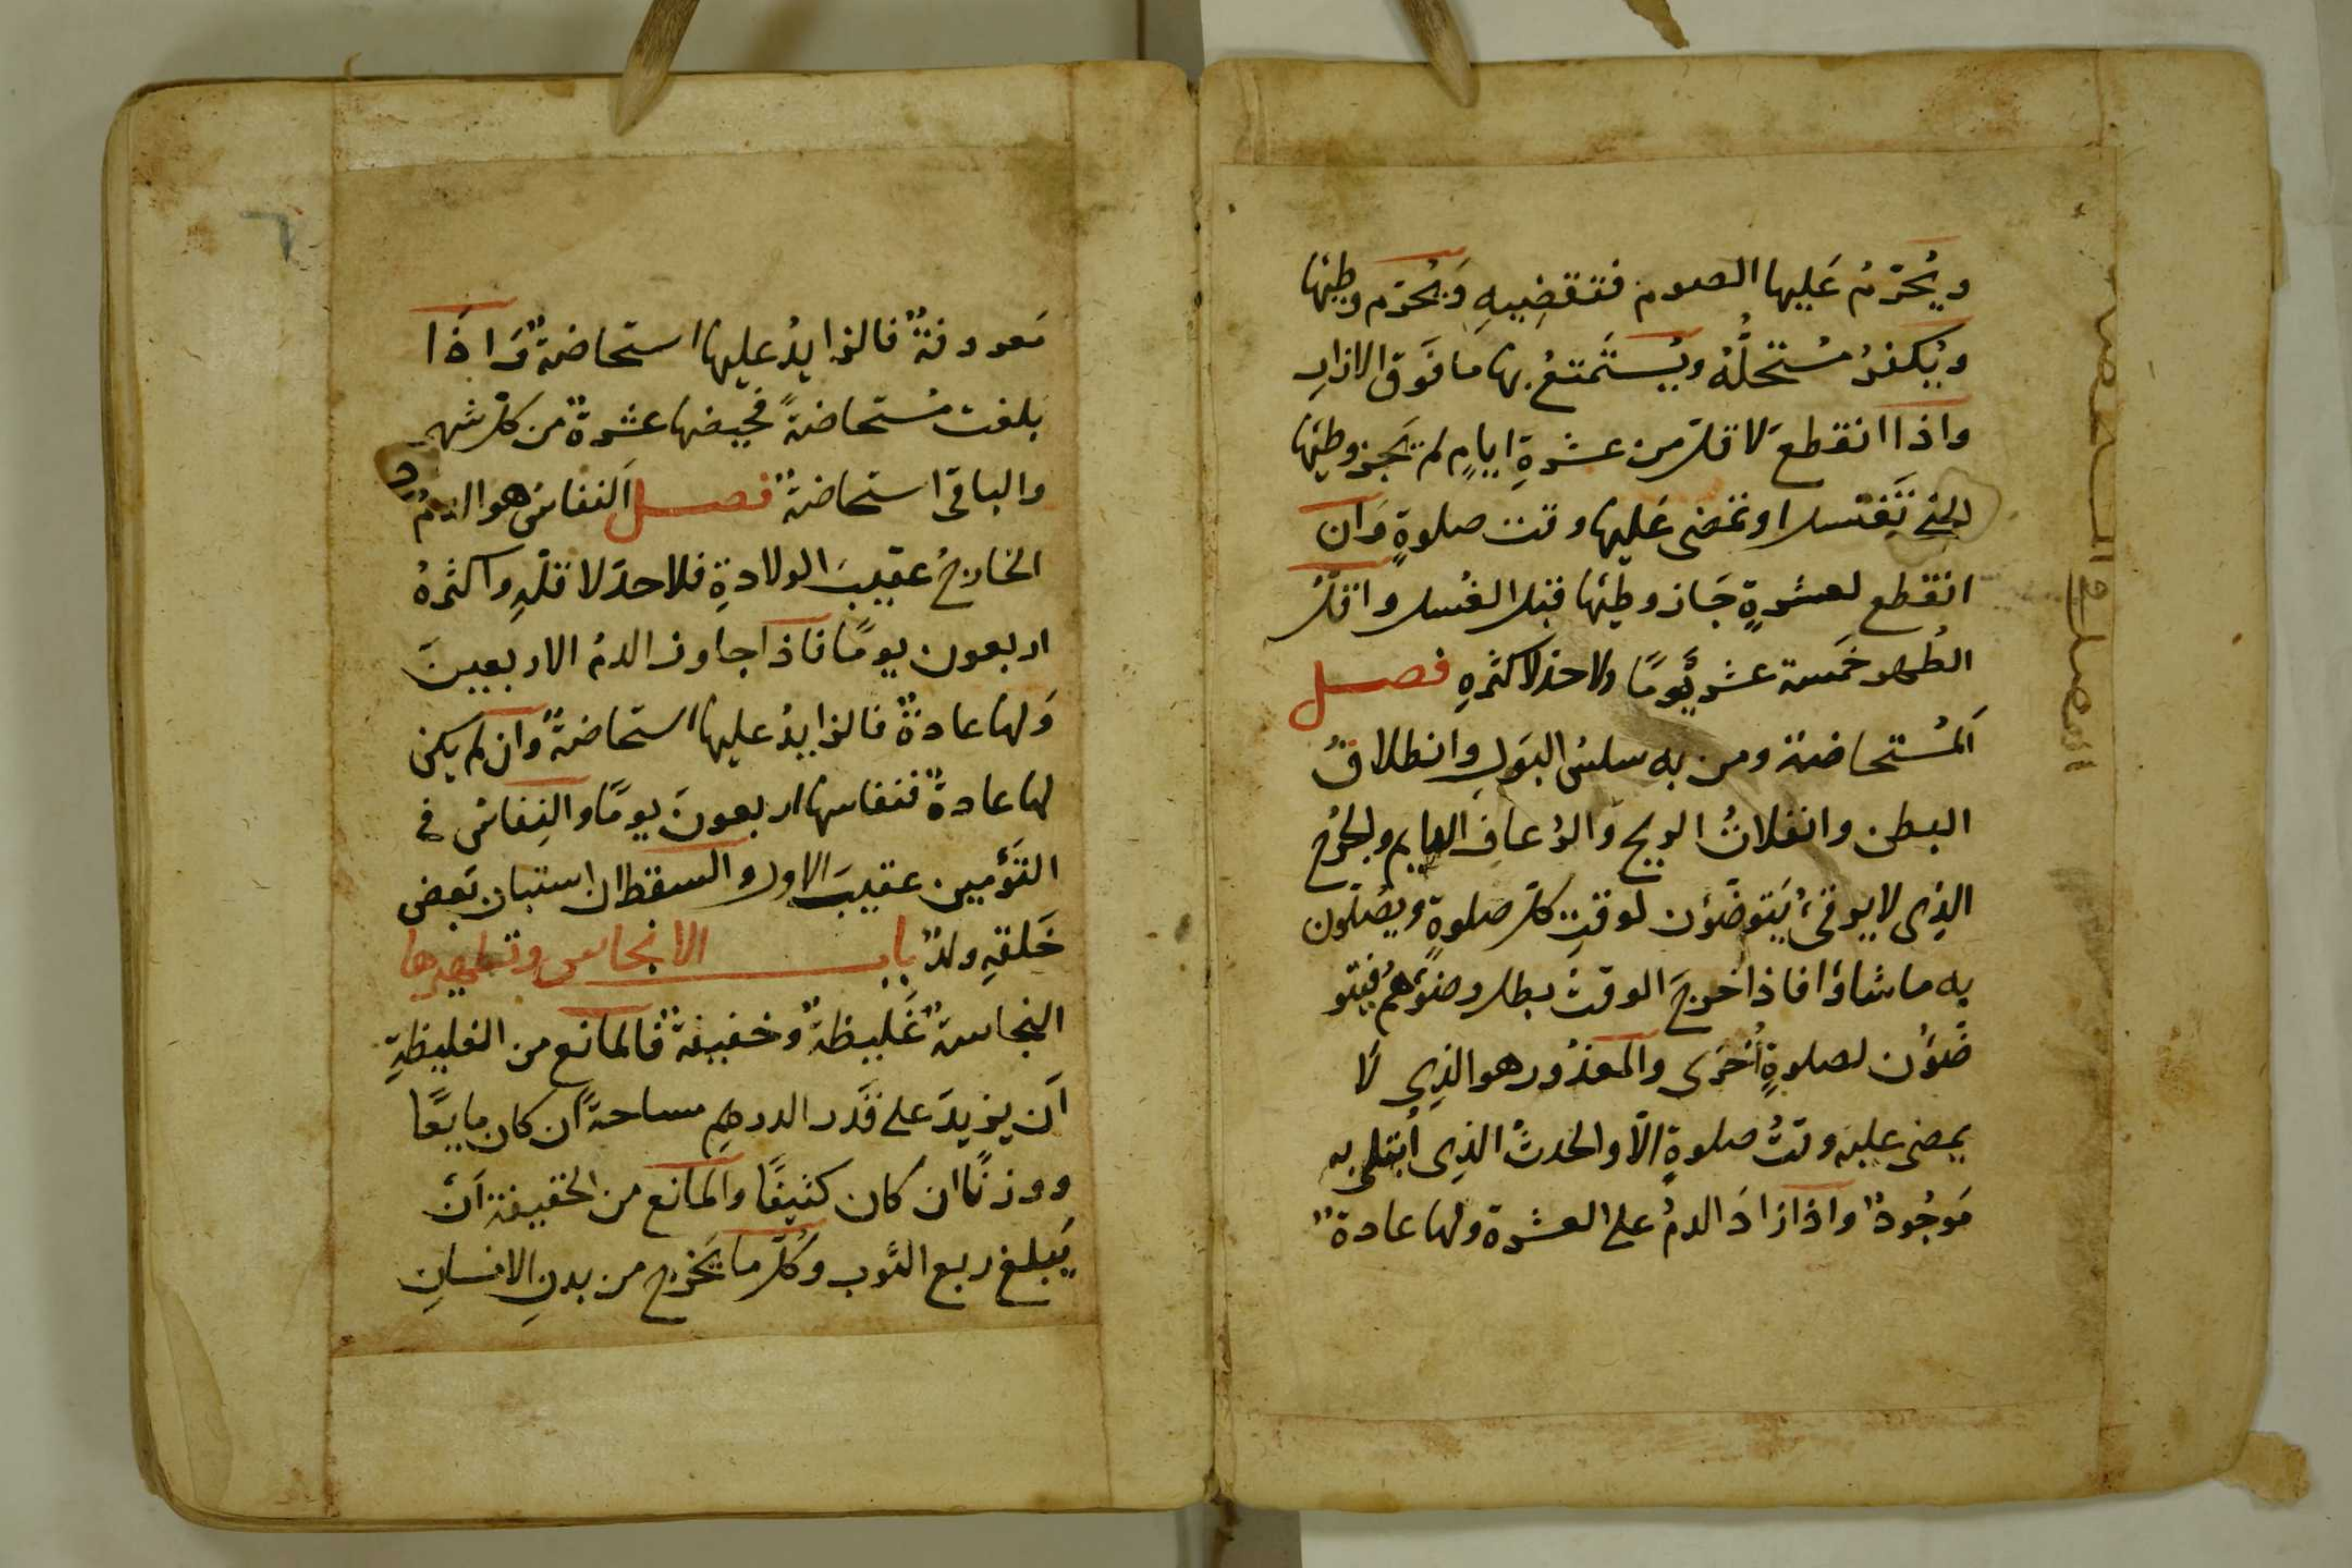 ويُحَرّمُ عَليها الصوم فتقضِيهِ وَيُحرّم وطيُها
ويُكفرُ مُستحلُّهُ ويُستَمتعُ بها ما فَوق الازارِ
واذا انقطع لاقلّ من عشرةِ ايامٍ لم يَجز وطيُها
حتى تَغتسل او تمضى عَليها وقت صلوةٍ وَان
انقطع لعشرةٍ جَاز وطيُها قبل الغُسل واقلّ
الطُهر خَمسة عشر يَومًا ولا حدّ لاكثرهِ فصل
اَلمُستحاضة ومن به سلسُ البَولِ وانطلاقُ
البطن وانفلاتُ الريح وَالرُعافِ الدايم والجُرحُ
الذِى لا يرقىءُ يَتوضّؤن لوقتِ كلّ صلوةٍ ويصَلّون
به ما شاؤا فاذا خرجَ الوقتُ بطل وضوَءُهُم فيتو
ضَؤُن لصلوةٍ اُخرَى والمعذُور هو الذِى لَا
يمضى عليه وقتُ صلوةٍ الّا والحدثُ الذِى اُبتلى به
مَوجُودٌ واذا زادَ الدمُ على العشرة ولها عادةٌ
مَعروفةٌ فالزايدُ عليها استحاضةٌ وَاذَا
بلغت مُستحاضةً فحيضها عشرةٌ من كلّ شهر
والباقى استحاضةٌ فصل اَلنفاسُ هو الدمُ
الخارجُ عقيبَ الولادةِ فلا حدّ لاقلّهِ واكثرهُ
اربعون يومًا فاذا جاوز الدمُ الاربعينَ
وَلها عادةٌ فالزايدُ عليها استحاضةٌ وان لم يكن
لها عادةٌ فنفاسها اربعونَ يومًا والنِفاسُ فى
التَوْمين عقيبَ الاول والسقط ان استبان بَعض
خَلقهِ ولدٌ باب الانجاس وتطهيرها
النجاسةُ غَليظةٌ وخفيفةٌ فالمانع من الغليظةِ
اَن يزيدَ على قَدر الدرهمِ مساحةً ان كان مايعًا
ووزنًا ان كان كثيفًا والمانع من الخفيفة اَنْ
يَبلغ ربع الثوب وَكلّ ما يَخرج من بدنِ الانسانِ